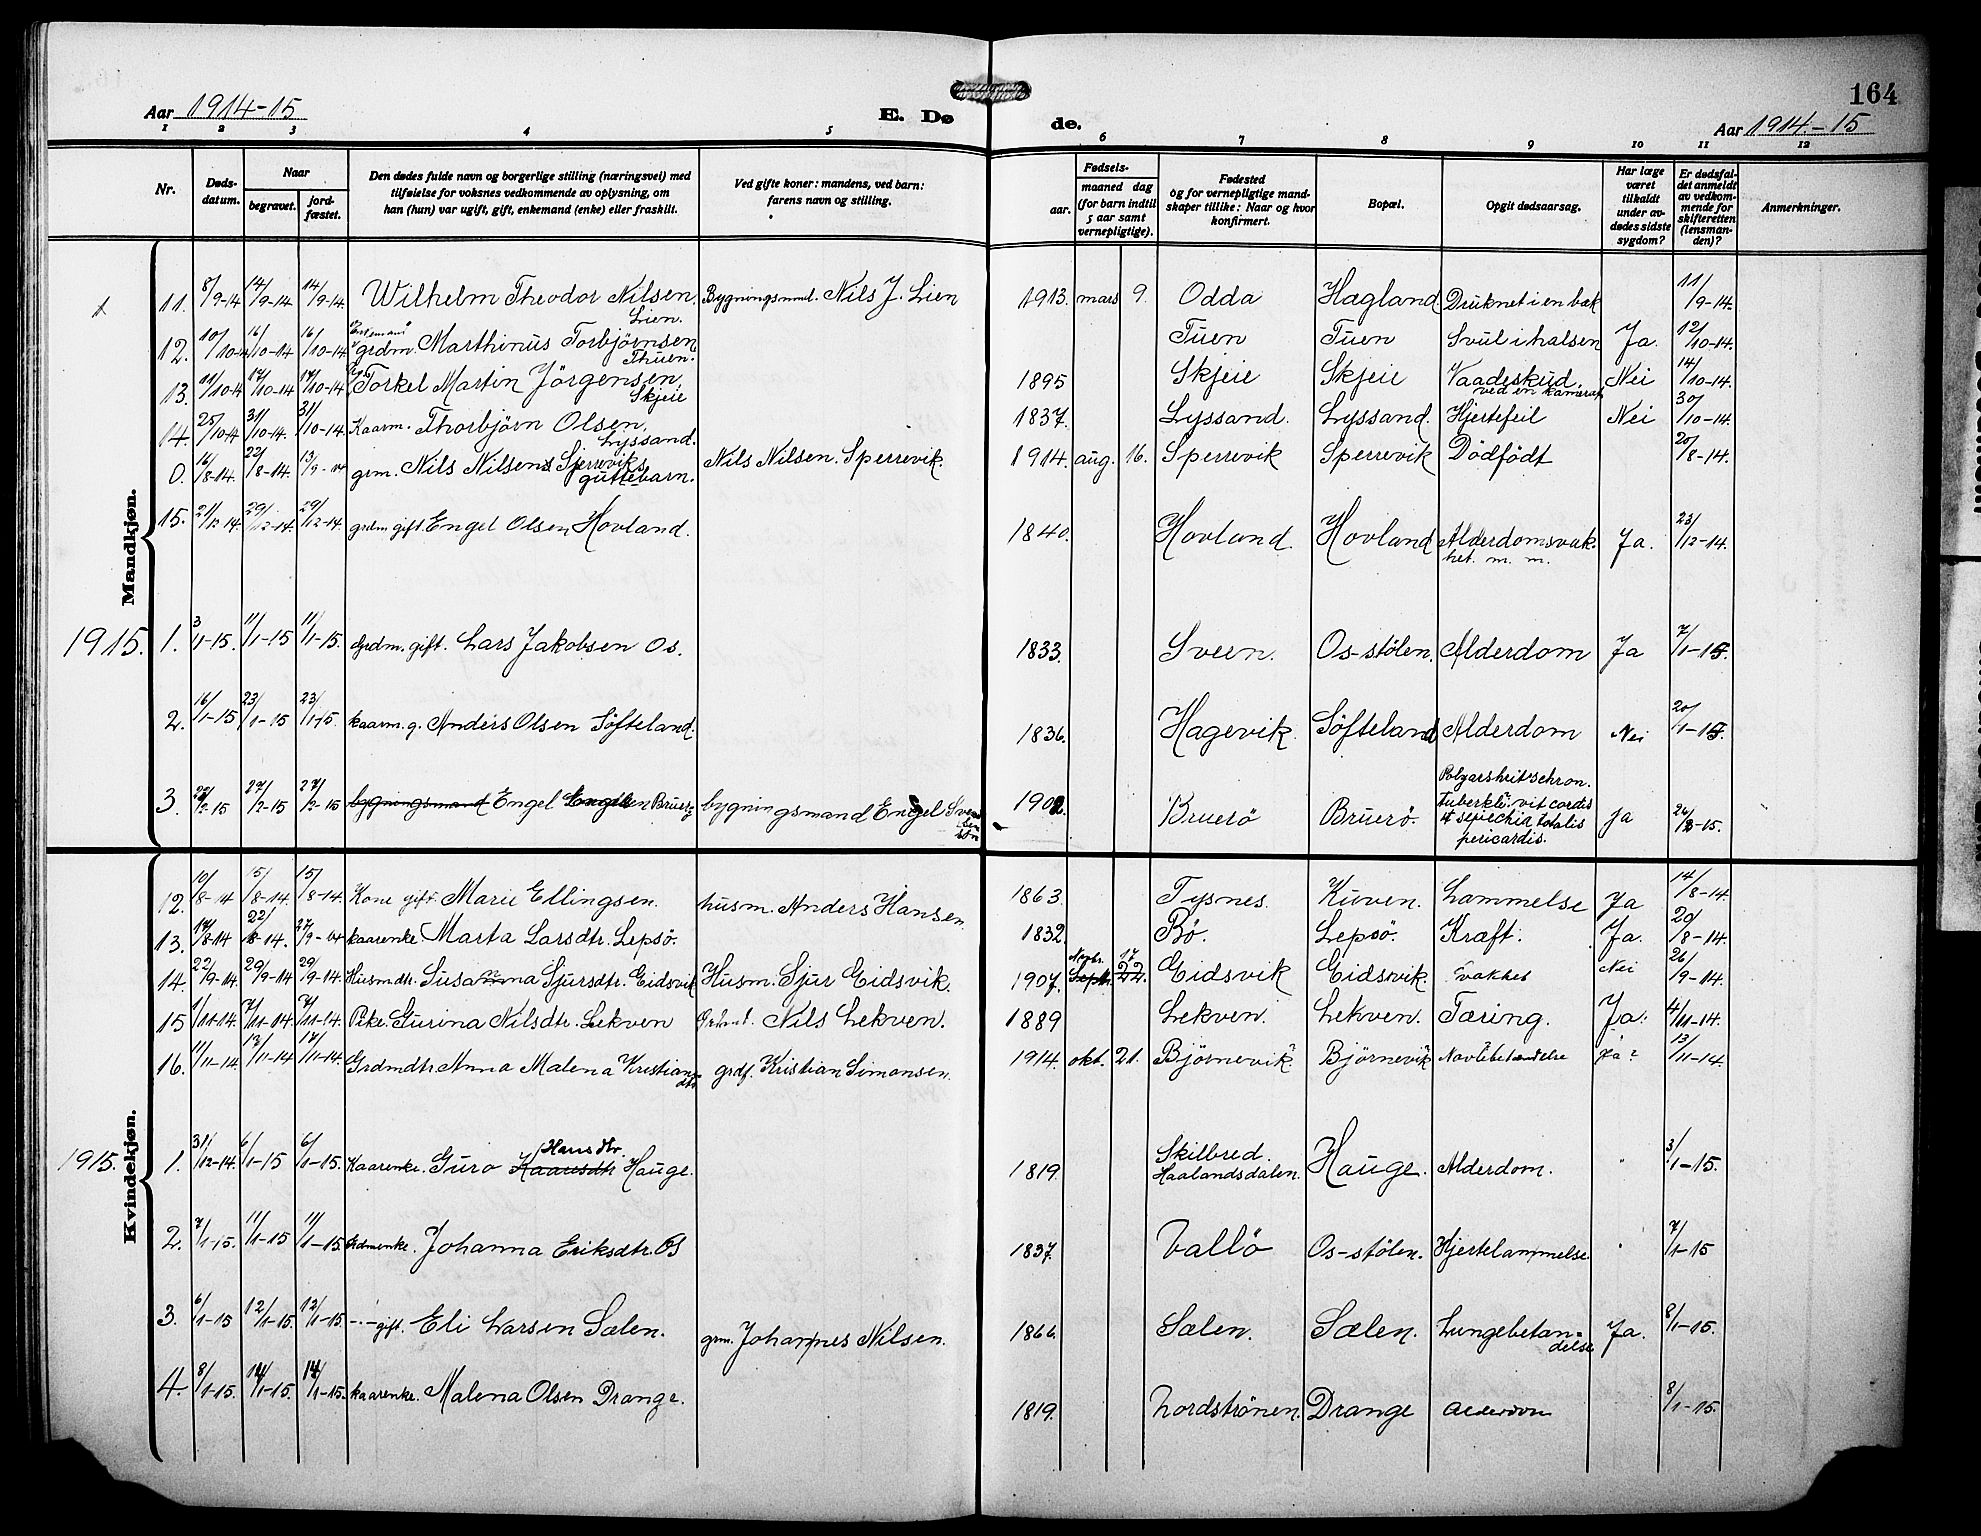 164
Aar 1914-15
E. Døde.
Aar 1914-15
1 2 3 4 5 6 7 8 9 10 11 12
Nr.
Døds-datum.
Naar
begravet.
jord-fæstet.
Den dødes fulde navn og borgerlige stilling (næringsvei) med
tilføielse for voksnes vedkommende av oplysning, om
han (hun) var ugift, gift, enkemand (enke) eller fraskilt.
Ved gifte koner: mandens, ved barn:
farens navn og stilling.
Fødsels-
aar.
maaned dag
(for barn indtil
5 aar samt
vernepligtige).
Fødested
og for vernepligtige mand-
skaper tillike: Naar og hvor
konfirmert.
Bopæl.
Opgit dødsaarsag.
Har læge
været
tilkaldt
under av-
dødes sidste
sygdom?
Er dødsfal-
det anmeldt
av vedkom-
mende for
skifteretten
(lensman-
den)?
Anmerkninger.
Mandkjøn.
11. 8/9-14 14/9-14. 14/9-14. Wilhelm Theodor Nilsen Lien. Nils J. Lien 1913. mars 9. Odda Hagland Druknet i en bæk 11/9-14.
12. 10/10-14 16/10-14 16/10-14 Enkemand grdm. Marthinus Torbjørnsen Thuen. Tuen Tuen Svul i halsen Ja. 12/10-14.
13. 11/10-14 17/10-14 17/10-14 Torkel Martin Jörgensen, Skjeie 1895 Skjeie Skjeie Vaadeskud ved en kamerat Nei 14/10-14.
14. 25/10-14 31/10-14. 31/10-14. Kaarm. Thorbjörn Olsen, Lyssand. 1837. Lyssand. Lyssand. Hjertefeil Nei 30/10-14.
0. 16/8-14. 22/8-14. 13/9-14 grm. Nils Nilsens Sperreviks guttebarn. Nils Nilsen. Sperrevik. 1914. aug. 16. Sperrevik Sperrevik Dödfödt 20/8-14.
15. 21/12-14. 29/12-14. 29/12-14. grdm gift. Engel Olsen Hovland. 1840. Hovland. Hovland Alderdomsvak-het. m. m. Ja. 23/12-14.
1915. 1. 3/1-15. 11/1-15 11/1-15. Grdm. gift. Lars Jakobsen Os. 1833. Sveen. Os-stölen. Alderdom Ja 7/1-15.
2. 16/1-15 23/1-15 23/1-15. kaarm. g. Anders Olsen Söfteland. 1836. Hagevik. Söfteland Alderdom Nei 20/1-15.
3. 27/2-15 27/2-15 bygningsmand Engel bygningsmand Engel 1902. Bruerö Bruerö. totalis pericardis. Ja
Kvindekjøn.
12. 10/8-14 15/8-14. 15/8-14. Kone gift. Marie Ellingsen. husm. Anders Hansen. 1863. Tysnes. Kuven. Lammelse Ja 14/8-14.
13. 22/8-14. 27/9-14 kaarenke Marta Larsdtr. Lepsö. 1832. Bö. Lepsö. Kræft. Ja. 20/8-14.
14. 22/9-14 29/9-14 29/9-14 Husmdtr. Susanna Sjursdtr. Eidsvik Husm. Sjur Eidsvik. 1907. Septr. 22. Novbr. 17 Eidsvik Eidsvik. Svakhet Nei 26/9-14.
15 1/11-14. 7/11-14. 7/11-14. Pike. Gurina Nilsdtr. Lekven Nils Lekven. 1889 Lekven. Lekven. Tæring. Ja. 4/11-14.
16. 11/11-14. 17/11-14 17/11-14. Grdmdtr. Anna Malena Kristians-dtr. grdf. Kristian Simonsen. 1914. okt. 21. Björnevik. Björnevik Navlebetændelse Ja 13/11-14.
1915. 1. 31/12-14. 6/1-15 6/1-15. Kaarenke. Guro Hansdtr. Hauge. 1819. Skilbred. Haalandsdalen. Hauge. Alderdom. " 3/1-15.
2. 7/1-15. 11/1-15 11/1-15. Grdmenke. Johanna Eriksdtr. Os 1837. Vallö Os-stölen. Hjertelammelse " 7/1-15
3. 6/1-15 12/1-15. 12/1-15. -"- gift. Eli Larsen Sælen. grm. Johannes Nilsen. 1866. Sælen. Sælen. Lungebetændelse Ja. 8/1-15.
4. 8/1-15. 14/1-15. 14/1-15. kaarenke. Malena Olsen Drange. 1819. Nordströnen. Drange Alderdom 8/1-15.